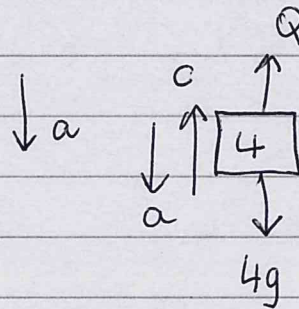 Q
c
a
4
a
4g